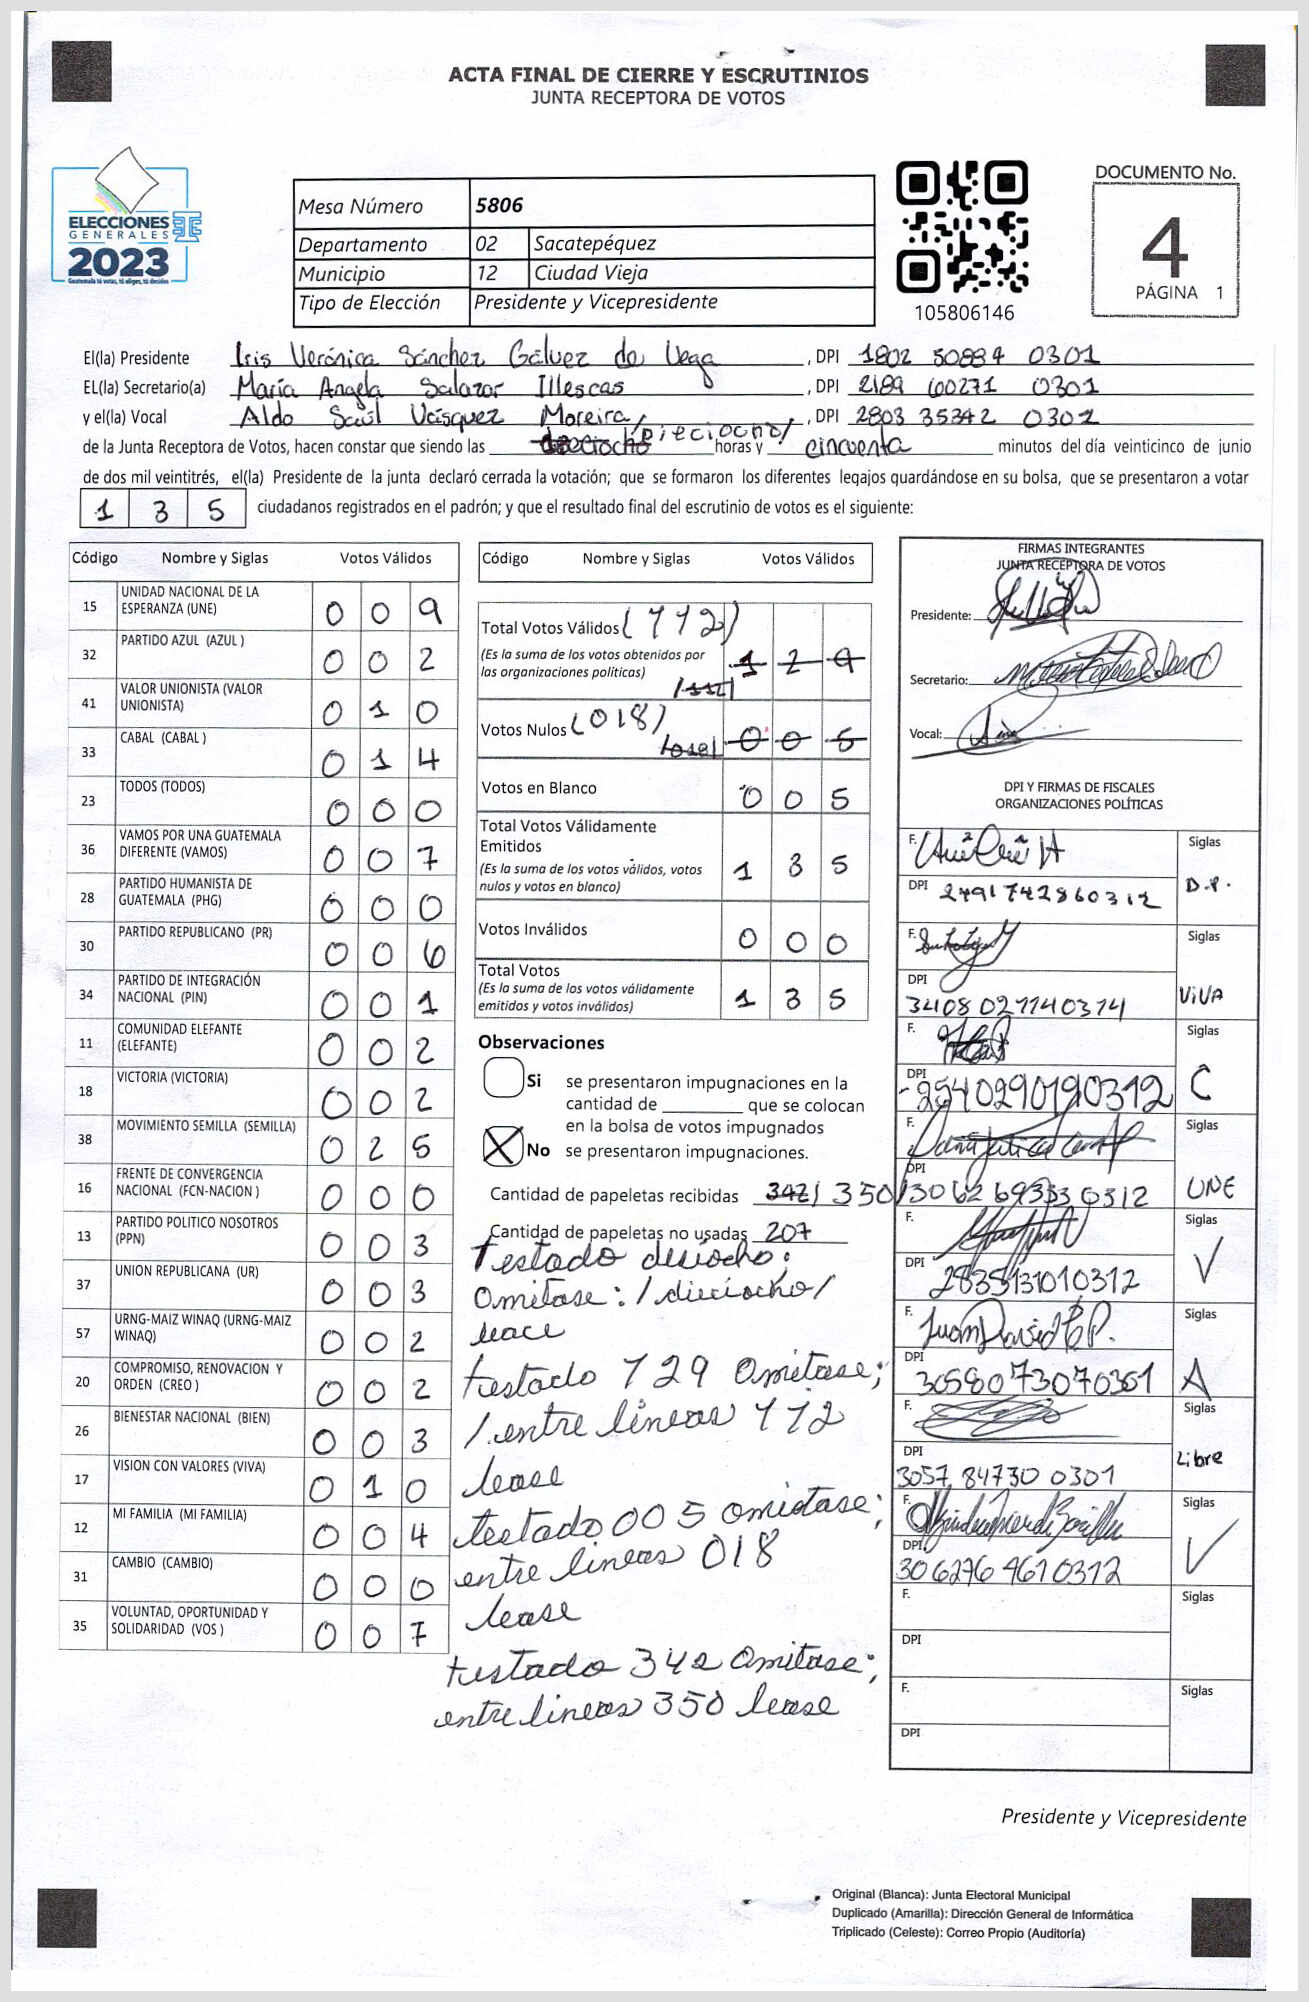 ACTA FINAL DE CIERRE Y ESCRUTINIOS
JUNTA RECEPTORA DE VOTOS
ELECCIONES
GENERALES
2023
Guatemala tú votas, tú eliges, tú decides
Mesa Número 5806
Departamento 02 Sacatepéquez
Municipio 12 Ciudad Vieja
Tipo de Elección Presidente y Vicepresidente
105806146
DOCUMENTO No.
4
PÁGINA 1
El(la) Presidente Iris Verónica Sánchez Gálvez de Vega, DPI 1802 50884 0301
EL(la) Secretario(a) María Angela Salazar Illescas, DPI 2189 60271 0301
y el(la) Vocal Aldo Saúl Vásquez Moreira, DPI 2803 35342 0301
de la Junta Receptora de Votos, hacen constar que siendo las dieciocho /Dieciocho/ horas y cincuenta minutos del día veinticinco de junio
de dos mil veintitrés, el(la) Presidente de la junta declaró cerrada la votación; que se formaron los diferentes legajos guardándose en su bolsa, que se presentaron a votar
1 3 5 ciudadanos registrados en el padrón; y que el resultado final del escrutinio de votos es el siguiente:
Código Nombre y Siglas Votos Válidos
15 UNIDAD NACIONAL DE LA ESPERANZA (UNE) 0 0 9
32 PARTIDO AZUL (AZUL ) 0 0 2
41 VALOR UNIONISTA (VALOR UNIONISTA) 0 1 0
33 CABAL (CABAL ) 0 1 4
23 TODOS (TODOS) 0 0 0
36 VAMOS POR UNA GUATEMALA DIFERENTE (VAMOS) 0 0 7
28 PARTIDO HUMANISTA DE GUATEMALA (PHG) 0 0 0
30 PARTIDO REPUBLICANO (PR) 0 0 6
34 PARTIDO DE INTEGRACIÓN NACIONAL (PIN) 0 0 1
11 COMUNIDAD ELEFANTE (ELEFANTE) 0 0 2
18 VICTORIA (VICTORIA) 0 0 2
38 MOVIMIENTO SEMILLA (SEMILLA) 0 2 5
16 FRENTE DE CONVERGENCIA NACIONAL (FCN-NACION ) 0 0 0
13 PARTIDO POLITICO NOSOTROS (PPN) 0 0 3
37 UNION REPUBLICANA (UR) 0 0 3
57 URNG-MAIZ WINAQ (URNG-MAIZ WINAQ) 0 0 2
20 COMPROMISO, RENOVACION Y ORDEN (CREO ) 0 0 2
26 BIENESTAR NACIONAL (BIEN) 0 0 3
17 VISION CON VALORES (VIVA) 0 1 0
12 MI FAMILIA (MI FAMILIA) 0 0 4
31 CAMBIO (CAMBIO) 0 0 0
35 VOLUNTAD, OPORTUNIDAD Y SOLIDARIDAD (VOS ) 0 0 7
Código Nombre y Siglas Votos Válidos
Total Votos Válidos (112)
(Es la suma de los votos obtenidos por
las organizaciones políticas) 1 2 9
/112/
Votos Nulos (018)
/018/ 0 0 5
Votos en Blanco 0 0 5
Total Votos Válidamente
Emitidos
(Es la suma de los votos válidos, votos
nulos y votos en blanco) 1 3 5
Votos Inválidos 0 0 0
Total Votos
(Es la suma de los votos válidamente
emitidos y votos inválidos) 1 3 5
Observaciones
Si se presentaron impugnaciones en la
cantidad de ________ que se colocan
en la bolsa de votos impugnados
X No se presentaron impugnaciones.
Cantidad de papeletas recibidas 342 / 350 /
Cantidad de papeletas no usadas 207
Testado deciocho:
Omitase: / dieciocho /
leace
testado 129 Omitase;
/ entre líneas 112
lease
testado 005 omitase;
entre lineas 018
lease
testado 342 Omitase;
entre lineas 350 lease
FIRMAS INTEGRANTES
JUNTA RECEPTORA DE VOTOS
Presidente:
Secretario:
Vocal:
DPI Y FIRMAS DE FISCALES
ORGANIZACIONES POLÍTICAS
F. Siglas
DPI 2491742860312 D.P.
F. Siglas
DPI
3408 021140314 VIVA
F. Siglas
DPI
2540290190312 C
F. Siglas
DPI
3062693330312 UNE
F. Siglas
DPI
2835131010312 V
F. Juan David Siglas
DPI
3058073070301 A
F. Siglas
DPI
3057 84730 0301 Libre
F. Siglas
DPI
3062764610312 V
F. Siglas
DPI
F. Siglas
DPI
Presidente y Vicepresidente
Original (Blanca): Junta Electoral Municipal
Duplicado (Amarilla): Dirección General de Informática
Triplicado (Celeste): Correo Propio (Auditoría)